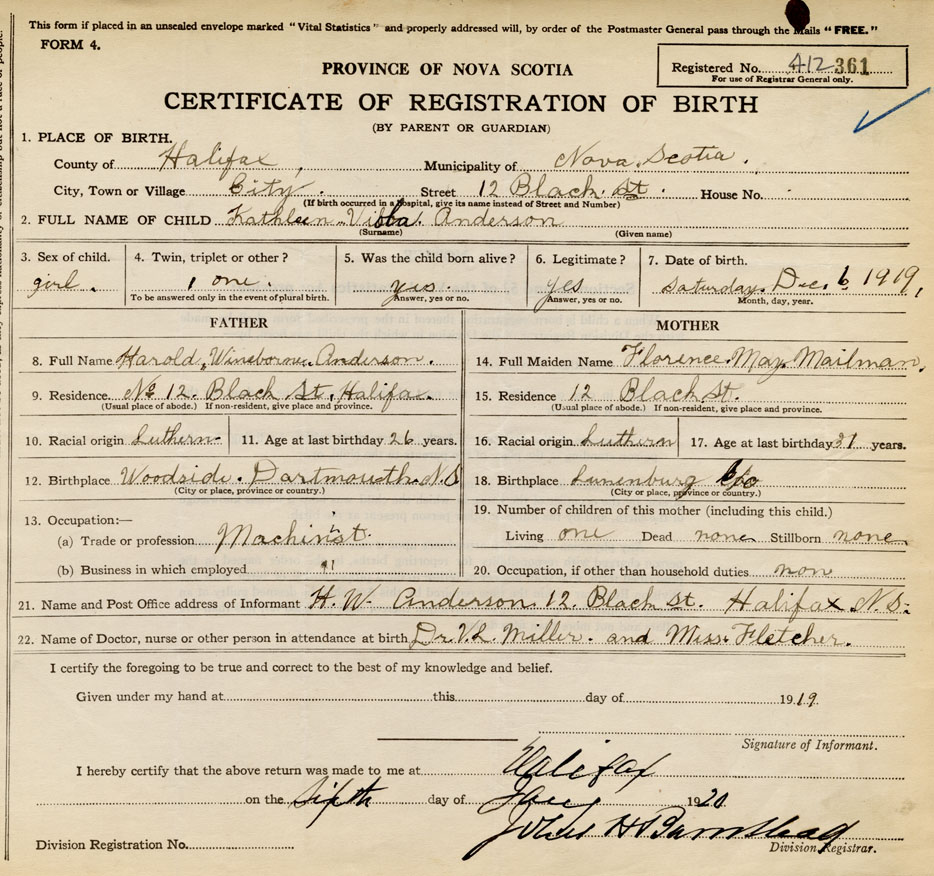 This form if placed in an unsealed envelope marked "Vital Statistics" and properly addressed will, by order of the Postmaster General pass through the Mails "FREE."
FORM 4.
Registered No. 412361
For use of Registrar General only.
PROVINCE OF NOVA SCOTIA
CERTIFICATE OF REGISTRATION OF BIRTH
(BY PARENT OR GUARDIAN)
1. PLACE OF BIRTH.
County of Halifax, Municipality of Nova Scotia.
City, Town or Village City. Street 12 Black St. House No.
(If birth occurred in a hospital, give its name instead of Street and Number)
2. FULL NAME OF CHILD Kathleen Anderson
(Surname) (Given name)
3. Sex of child. 4. Twin, triplet or other? 5. Was the child born alive? 6. Legitimate? 7. Date of birth.
girl. 1 one. yes. yes Saturday. Dec. 6 1919,
To be answered only in the event of plural birth. Answer, yes or no. Answer, yes or no. Month, day, year.
FATHER MOTHER
8. Full Name Harold Winsborne Anderson. 14. Full Maiden Name Florence May Mailman,
9. Residence. No 12. Black St, Halifax. 15. Residence 12 Black St.
(Usual place of abode.) If non-resident, give place and province. (Usual place of abode.) If non-resident, give place and province.
10. Racial origin Luthern 11. Age at last birthday 26 years. 16. Racial origin Luthern 17. Age at last birthday years.
12. Birthplace Woodside. Dartmouth. N.S 18. Birthplace Lunenburg Co
(City or place, province or country.) (City or place, province or country.)
19. Number of children of this mother (including this child.)
13. Occupation:—
(a) Trade or profession Machinist. Living one Dead none Stillborn none
(b) Business in which employed "
20. Occupation, if other than household duties non
21. Name and Post Office address of Informant H. W. Anderson. 12. Black St. Halifax N.S.
22. Name of Doctor, nurse or other person in attendance at birth Dr. V.L. Miller. and Miss. Fletcher.
I certify the foregoing to be true and correct to the best of my knowledge and belief.
Given under my hand at this day of 1919.
Signature of Informant.
I hereby certify that the above return was made to me at Halifax
on the Sixth day of Jany 1920
Division Registration No. Division Registrar.